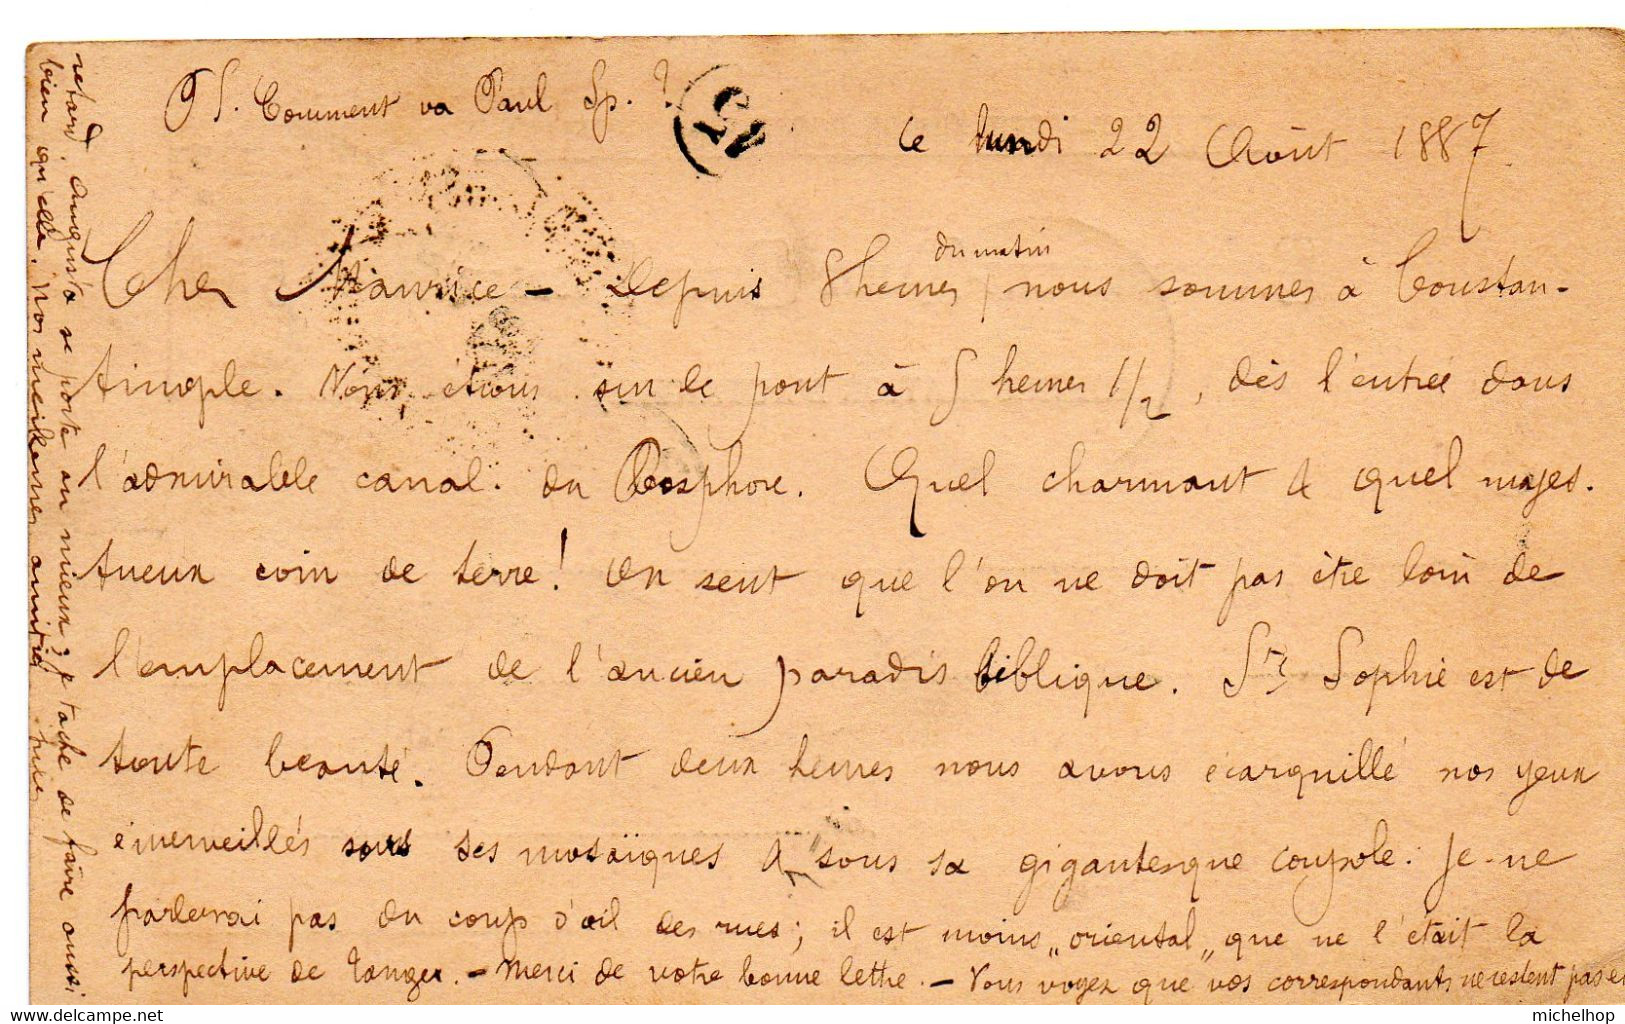 PS. Comment va Paul Sp. ?
15
Ce lundi 22 Août 1887
du matin
Cher Maurice – Depuis 8 heures, nous sommes à Constan-
tinople. Nous étions sur le pont à 5 heures 1/2, dès l'entrée dans
l'admirable canal du Bosphore. Quel charmant & quel majes-
tueux coin de terre! On sent que l'on ne doit pas être loin de
l'emplacement de l'ancien paradis biblique. Ste Sophie est de
toute beauté. Pendant deux heures nous avons écarquillé nos yeux
émerveillés sous ses mosaïques & sous sa gigantesque coupole. Je ne
parlerai pas du coup d'œil des rues; il est moins „oriental„ que ne l'était la
perspective de Tanger. – Merci de votre bonne lettre. – Vous voyez que vos correspondants ne restent pas en
retard. Augusta se porte au mieux; je tâche de faire aussi
bien qu'elle. Nos meilleures amitiés